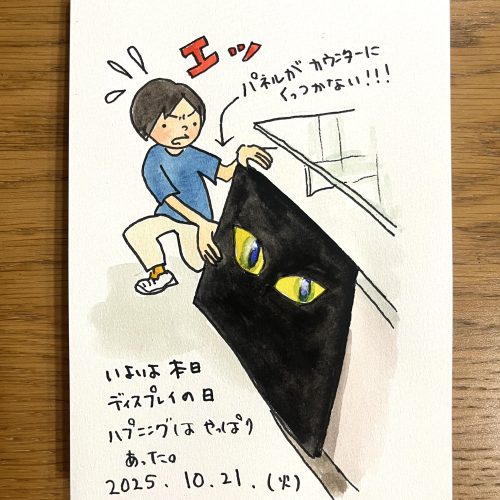 エッ
パネルが カウンターに
くっつかない!!!
いよいよ 本日
ディスプレイの日
ハプニングは やっぱり
あった。
2025. 10. 21. (火)